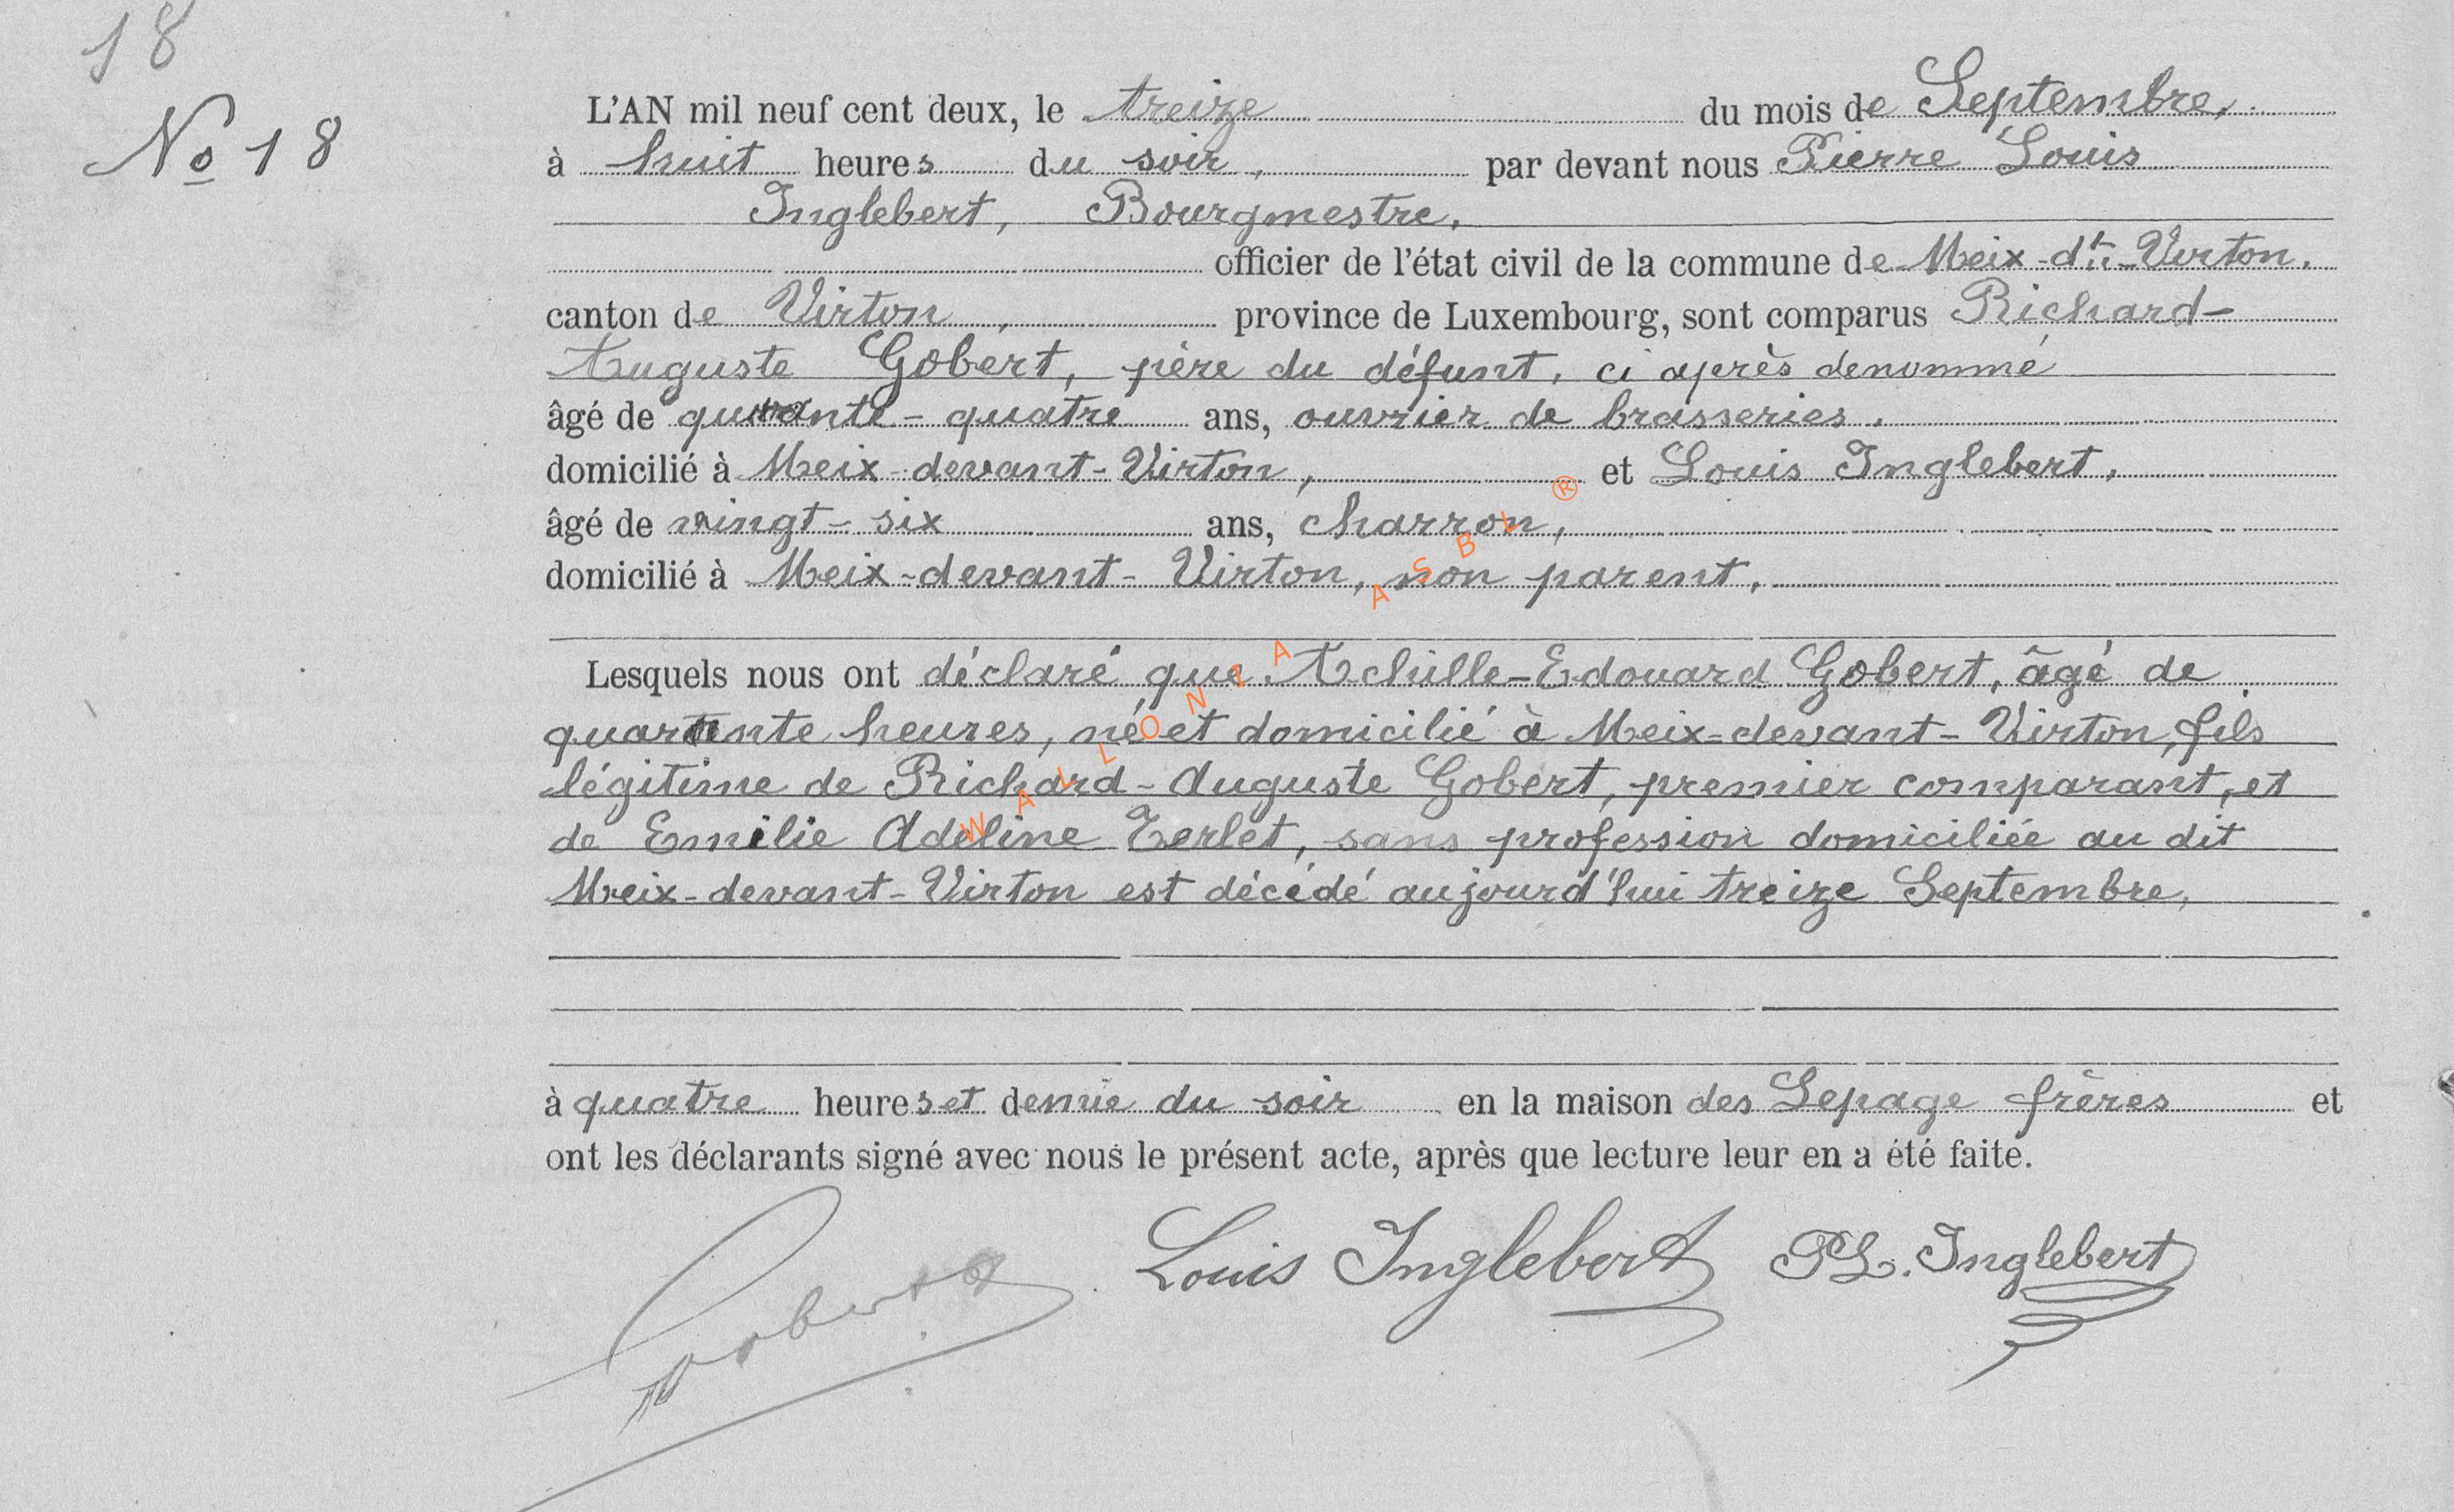 18
No 18
L'AN mil neuf cent deux, le treize du mois de Septembre,
à huit heures du soir, par devant nous Pierre Louis
Inglebert, Bourgmestre,
officier de l'état civil de la commune de Meix-dt-Virton.
canton de Virton, province de Luxembourg, sont comparus Richard-
Auguste Gobert, père du défunt, ci après denommé
âgé de quarante-quatre ans, ouvrier de brasseries.
domicilié à Meix-devant-Virton, et Louis Inglebert,
âgé de vingt-six ans, charron,
domicilié à Meix-devant-Virton, non parent.
Lesquels nous ont déclaré que Achille-Edouard Gobert, âgé de
quarante heures, né et domicilié à Meix-devant-Virton, fils
légitime de Richard-Auguste Gobert, premier comparant, et
de Emilie Adeline Terlet, sans profession domiciliée au dit
Meix-devant-Virton est décédé aujourd'hui treize Septembre,
à quatre heures et demie du soir en la maison des Lepage frères et
ont les déclarants signé avec nous le présent acte, après que lecture leur en a été faite.
Gobert Louis Inglebert PL. Inglebert
WALLONIA ASBL ®